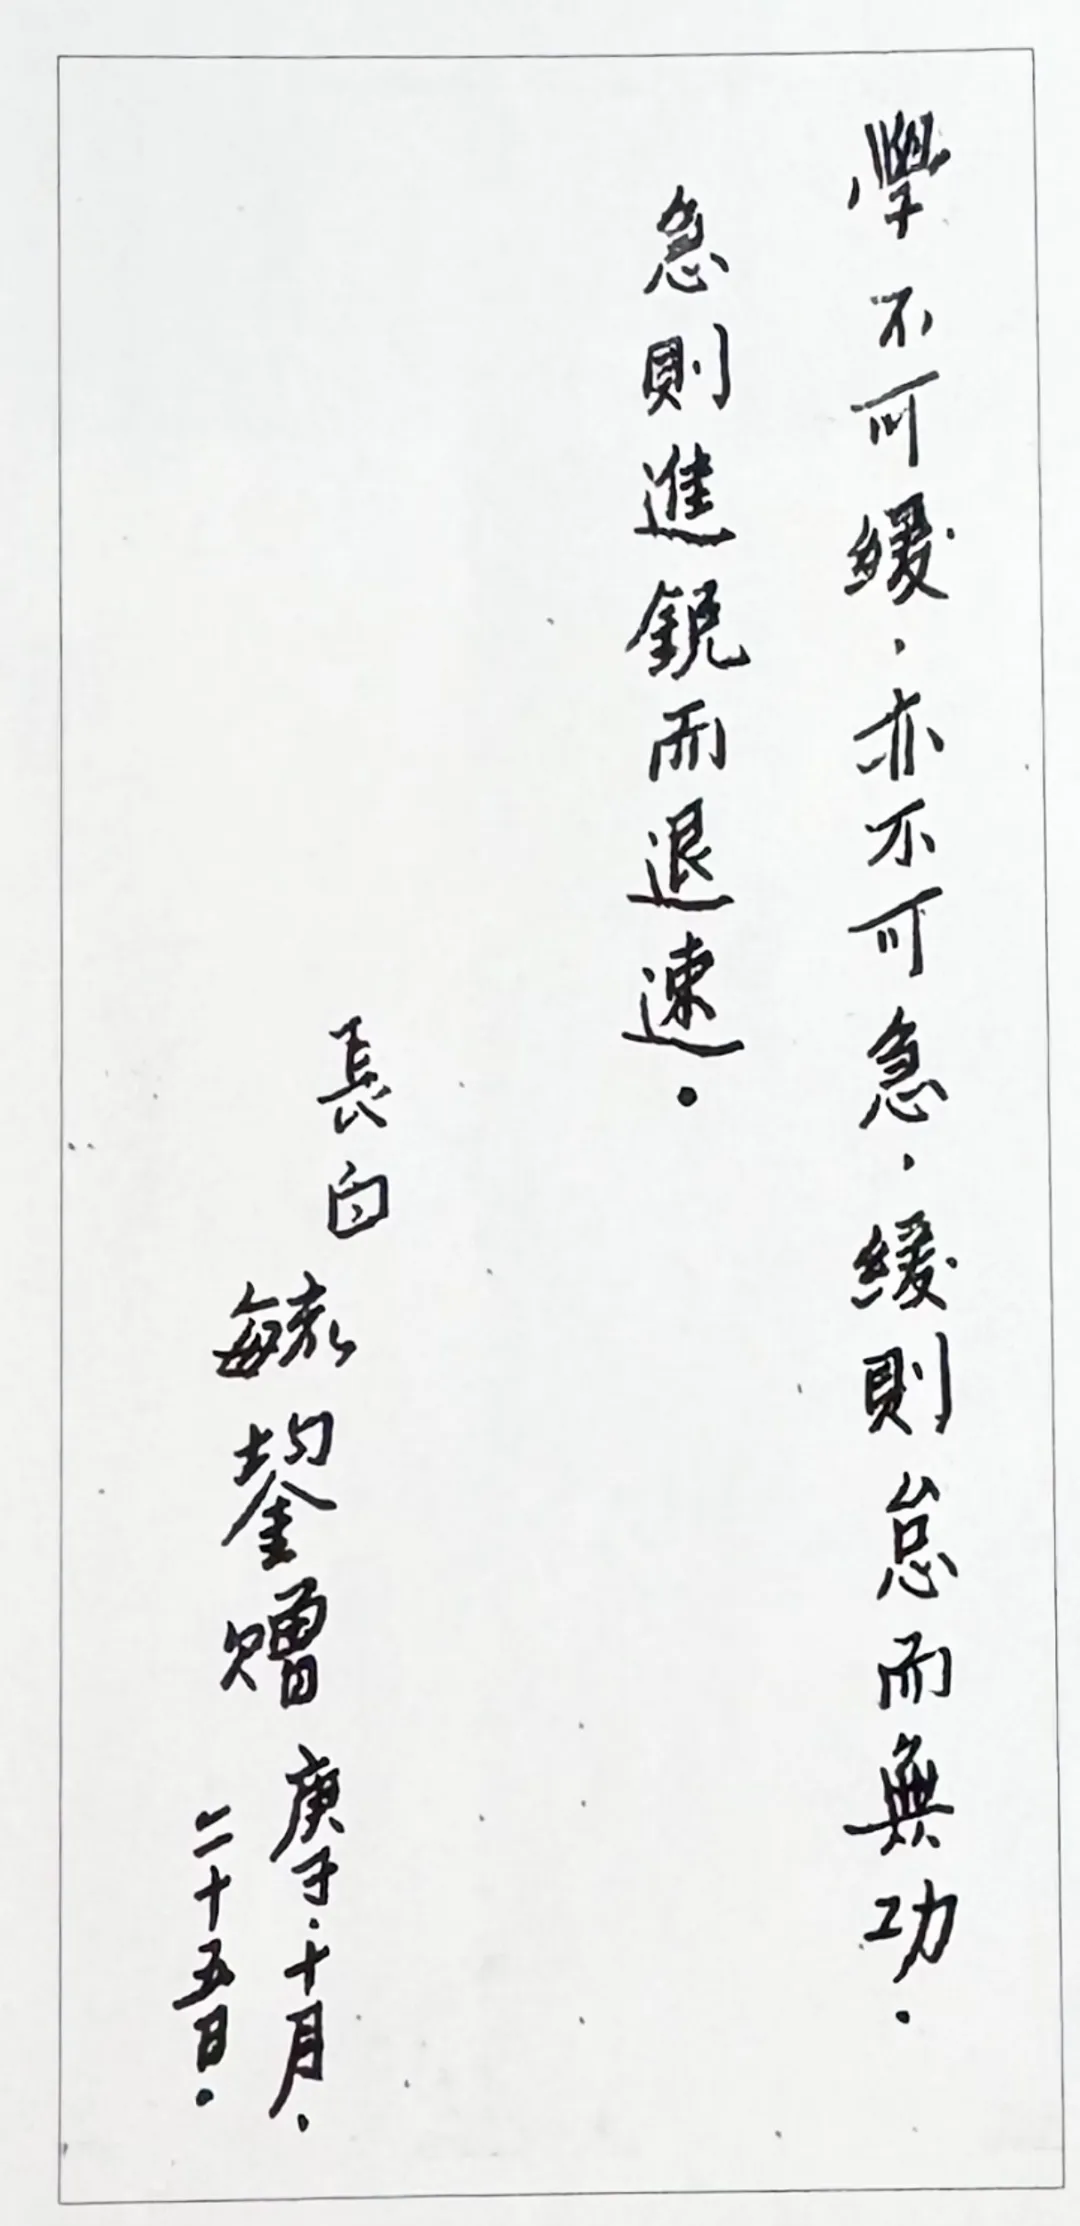 學不可緩，亦不可急，緩則怠而無功。
急則進銳而退速。
長白
毓鋆贈
庚子．十月．
二十五日．